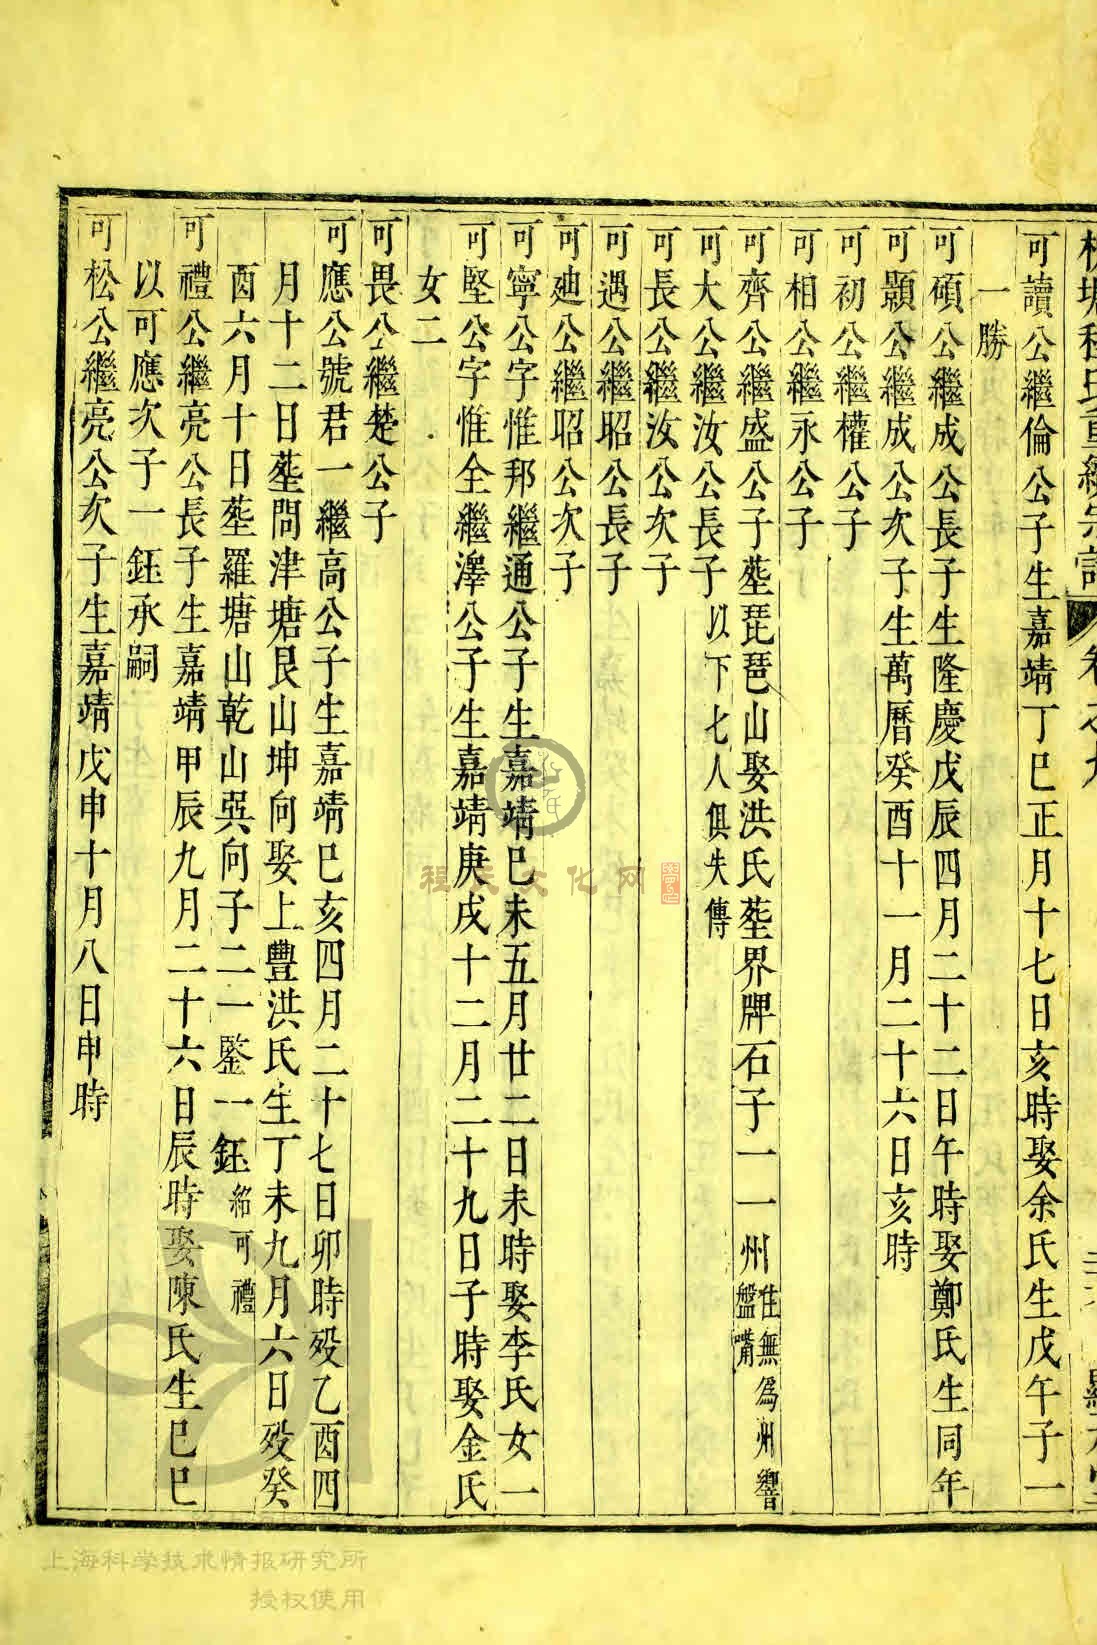 可讀公繼倫公子生嘉靖丁巳正月十七日亥時娶余氏生戊午子一
一勝
可碩公繼成公長子生隆慶戊辰四月二十二日午時娶鄭氏生同年
可顥公繼成公次子生萬曆癸酉十一月二十六日亥時
可初公繼權公子
可相公繼永公子
可齊公繼盛公子塟琵琶山娶洪氏塟界牌石子一一州住無為州響盤嘴
可大公繼汝公長子以下七人俱失傳
可長公繼汝公次子
可遇公繼昭公長子
可廸公繼昭公次子
可寧公字惟邦繼通公子生嘉靖巳未五月廿二日未時娶李氏女一
可堅公字惟全繼澤公子生嘉靖庚戌十二月二十九日子時娶金氏
女二
可畏公繼楚公子
可應公號君一繼高公子生嘉靖巳亥四月二十七日卯時殁乙酉四
月十二日塟問津塘艮山坤向娶上豐洪氏生丁未九月六日殁癸
酉六月十日塟羅塘山乾山巽向子二一鑒一鈺紹可禮
可禮公繼亮公長子生嘉靖甲辰九月二十六日辰時娶陳氏生巳巳
以可應次子一鈺承嗣
可松公繼亮公次子生嘉靖戊申十月八日申時
程氏文化网
上海科学技术情报研究所
授权使用